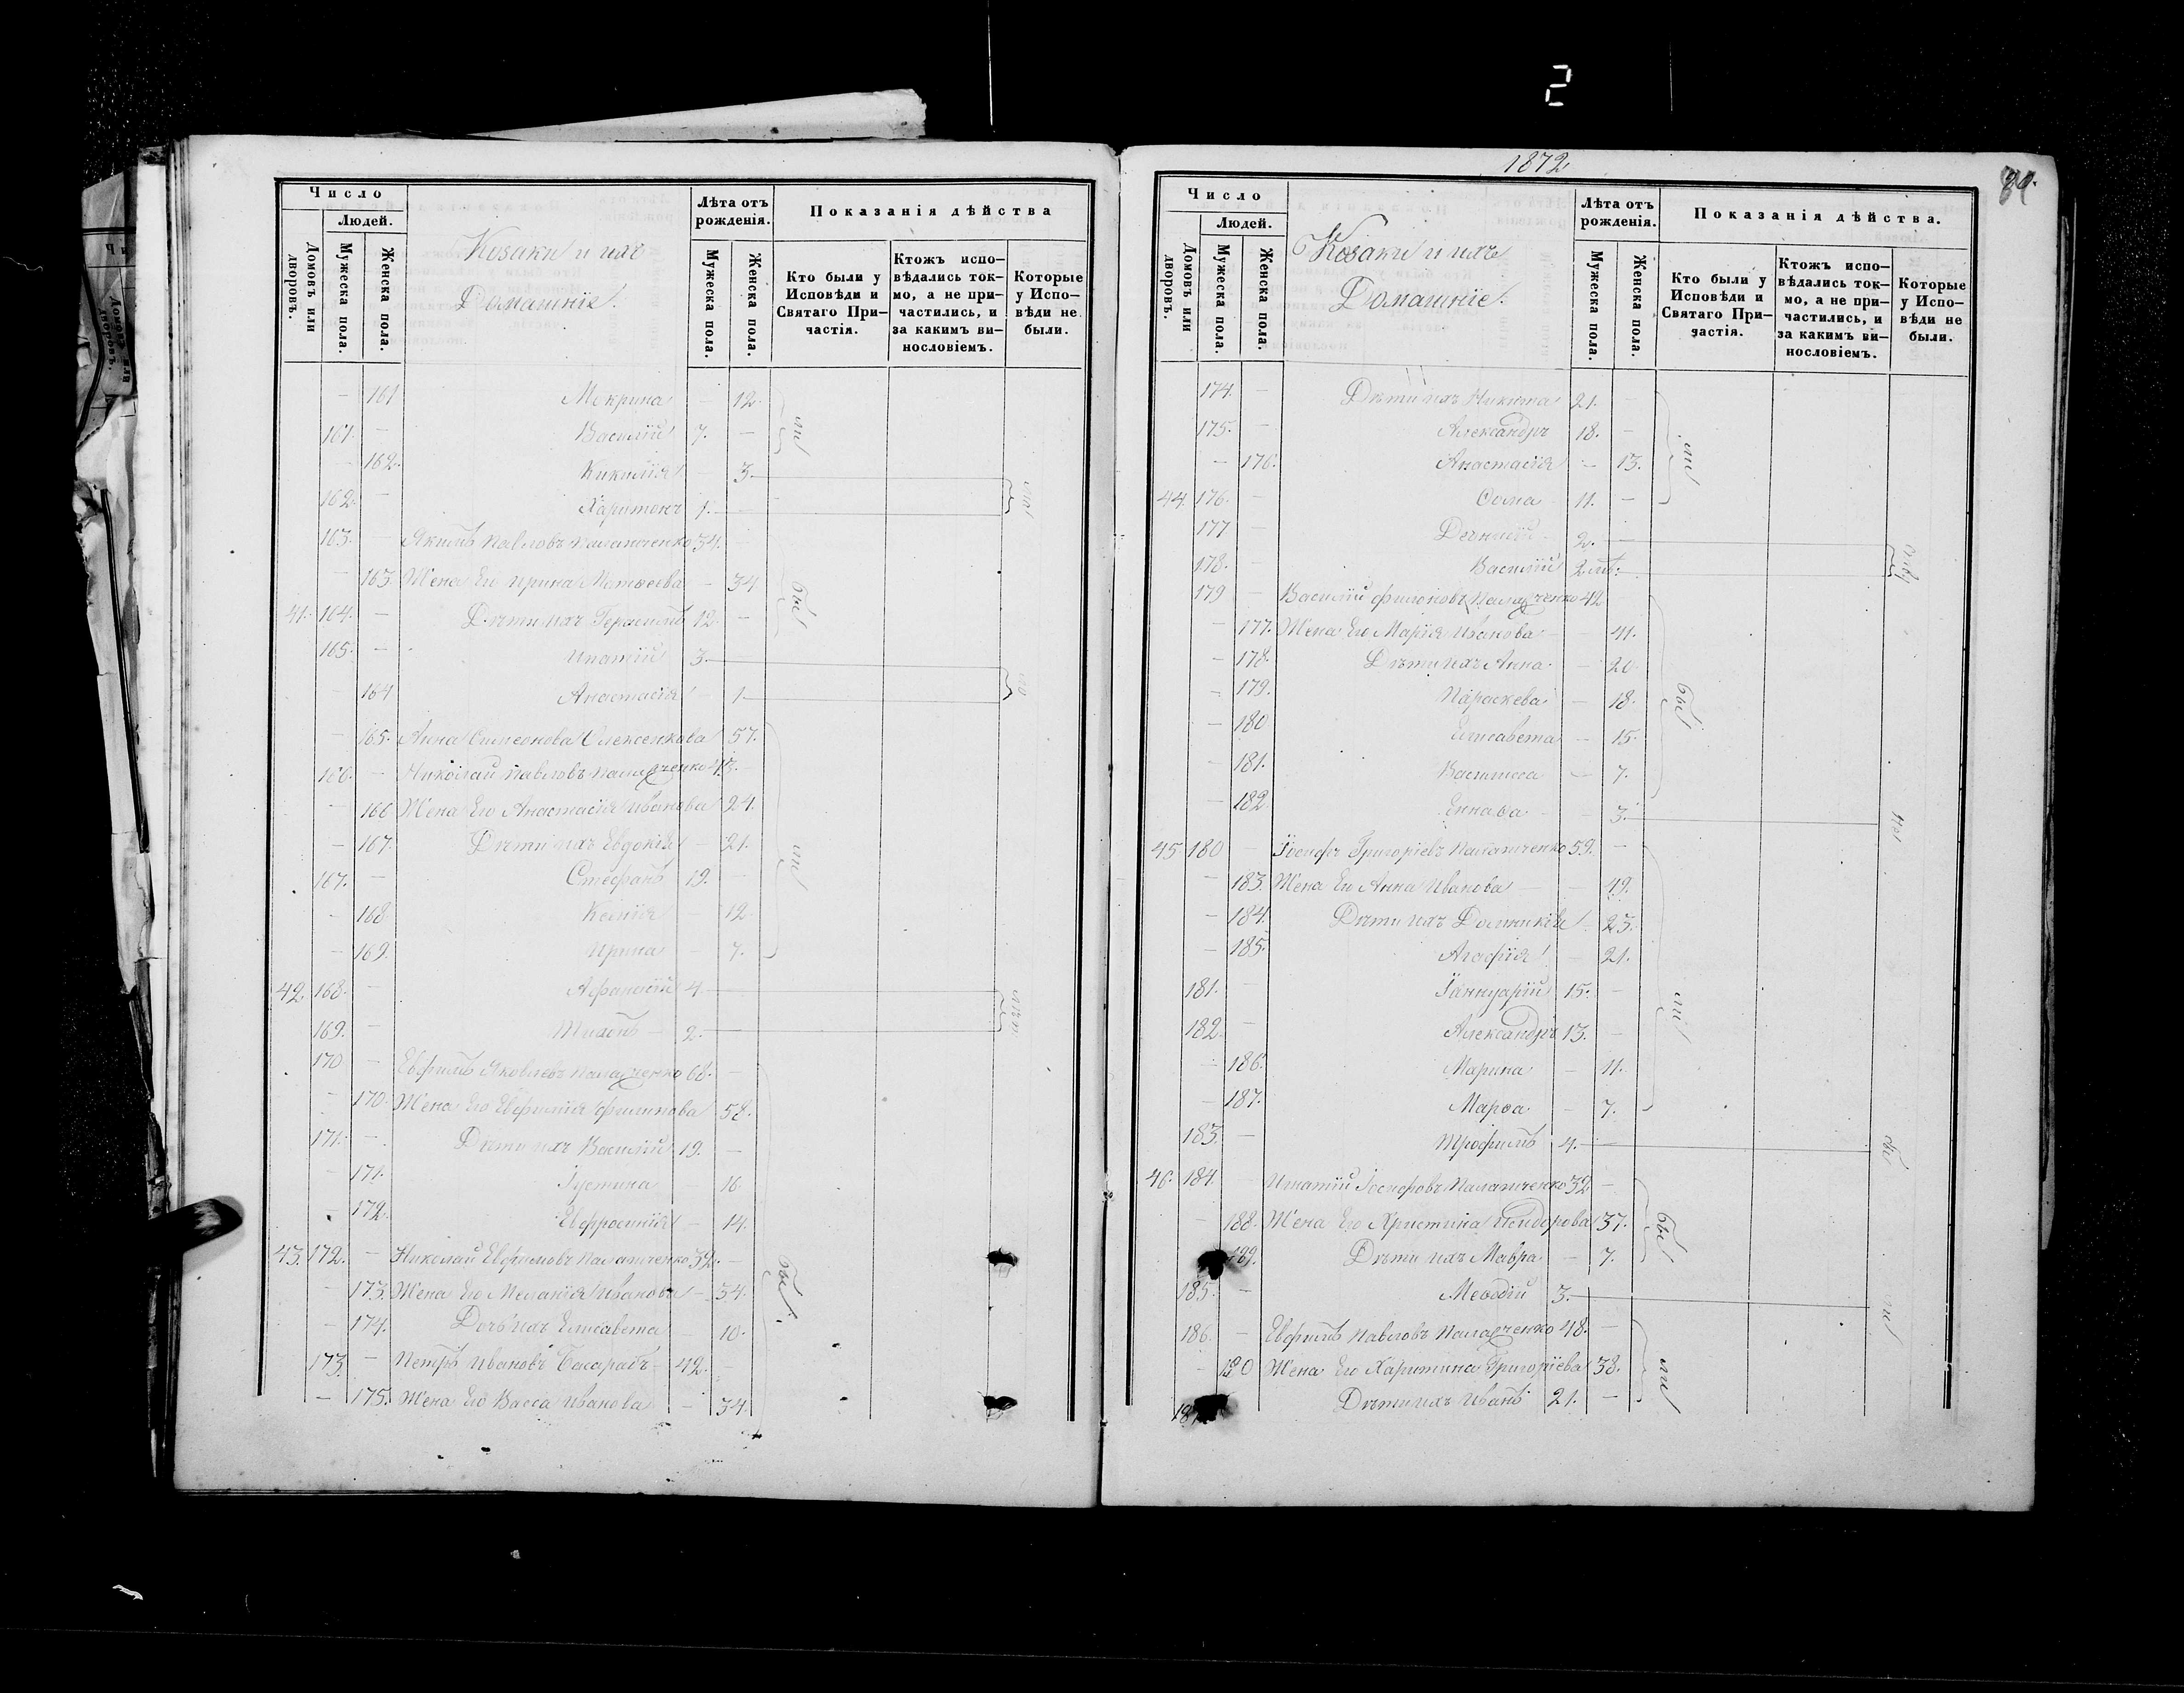 Число
Людей.
Домовъ или дворовъ.
Мужеска пола.
Женска пола.
Козаки и ихъ
Домашніе.
Лѣта отъ рожденія.
Мужеска пола.
Женска пола.
Показанія дѣйства
Кто были у Исповѣди и Святаго При-частія.
Ктожъ испо-вѣдались ток-мо, а не при-частились, и за какимъ ви-нословіемъ.
Которые у Испо-вѣди не были.
— 161 Мокрина — 12.
161. — Василій 7. —
— 162. Кикилія — 3.
162. — Харитонъ 1. —
163. — Якимъ Павловъ Палатченко 34. —
— 163 Жена Его Ирина Матѳеева — 34
41. 164. — Дѣти ихъ Герасимъ 12. —
165. — Ипатій 3.
— 164 Анастасія — 1.
— 165. Анна Симеонова 57.
166. — Николай Павловъ
— 166 Жена Его Анастасія Иванова 24.
— 167. Дѣти ихъ Евдокія — 21.
167. — Стефанъ 19. —
— 168. — 12
— 169. Ирина — 7.
42. 168. — Афанасій 4.
169. — 2.
170 — Евфимъ Яковлевъ 68. —
— 170. Жена Его Евфимія Филипова 58.
171. — Дѣти ихъ Василій 19. —
— 171. Іустина — 16.
— 172. Евфросинія — 14.
43. 172. — Николай Евфимовъ Палатченко 32. —
— 173. Жена Его Меланія Иванова — 34.
— 174. Дочь ихъ Елисавета — 10.
173. — Петръ Ивановъ Басарабъ 42. —
— 175. Жена Его Васса Иванова — 34.
1872
Число
Людей.
Домовъ или дворовъ.
Мужеска пола.
Женска пола.
Козаки и ихъ
Домашніе.
Лѣта отъ рожденія.
Мужеска пола.
Женска пола.
Показанія дѣйства.
Кто были у Исповѣди и Святаго При-частія.
Ктожъ испо-вѣдались ток-мо, а не при-частились, и за какимъ ви-нословіемъ.
Которые у Испо-вѣди не были.
174. — Дѣти ихъ Никита 21. —
175. — Александръ 18. —
— 176. Анастасія — 13.
44. 176. — Ѳома 11. —
177 — 2. —
178. — Василій
179 — Василій 42
— 177. Жена Его Марія Иванова — 41.
— 178. Дѣти ихъ Анна — 20.
— 179. Параскева — 18.
— 180 Елисавета — 15.
— 181. Василиса — 7.
— 182 — 3.
45 180 — Іосифъ Григоріевъ Палатченко 59. —
— 183. Жена Его Анна Иванова — 49.
— 184. Дѣти ихъ Домникія — 25.
— 185. Агафія — 21.
181. — Іаннуарій 15. —
182. — Александръ 13. —
— 186. Марина — 11.
— 187. Марѳа — 7.
183. — Трофимъ 4. —
46. 184. — Игнатій Іосифовъ Палатченко 32 —
— 188. Жена Его Христина 37.
189. Дѣти ихъ Мавра — 7.
185. — Меѳодій 3.
186. — Евфимъ Павловъ 48. —
— 190 Жена Его Харитина Григоріева 38.
Дѣти ихъ Иванъ 21. —